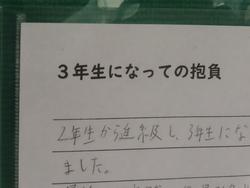 ３年生になっての抱負
2年生から進級し、3年生にな
ました。